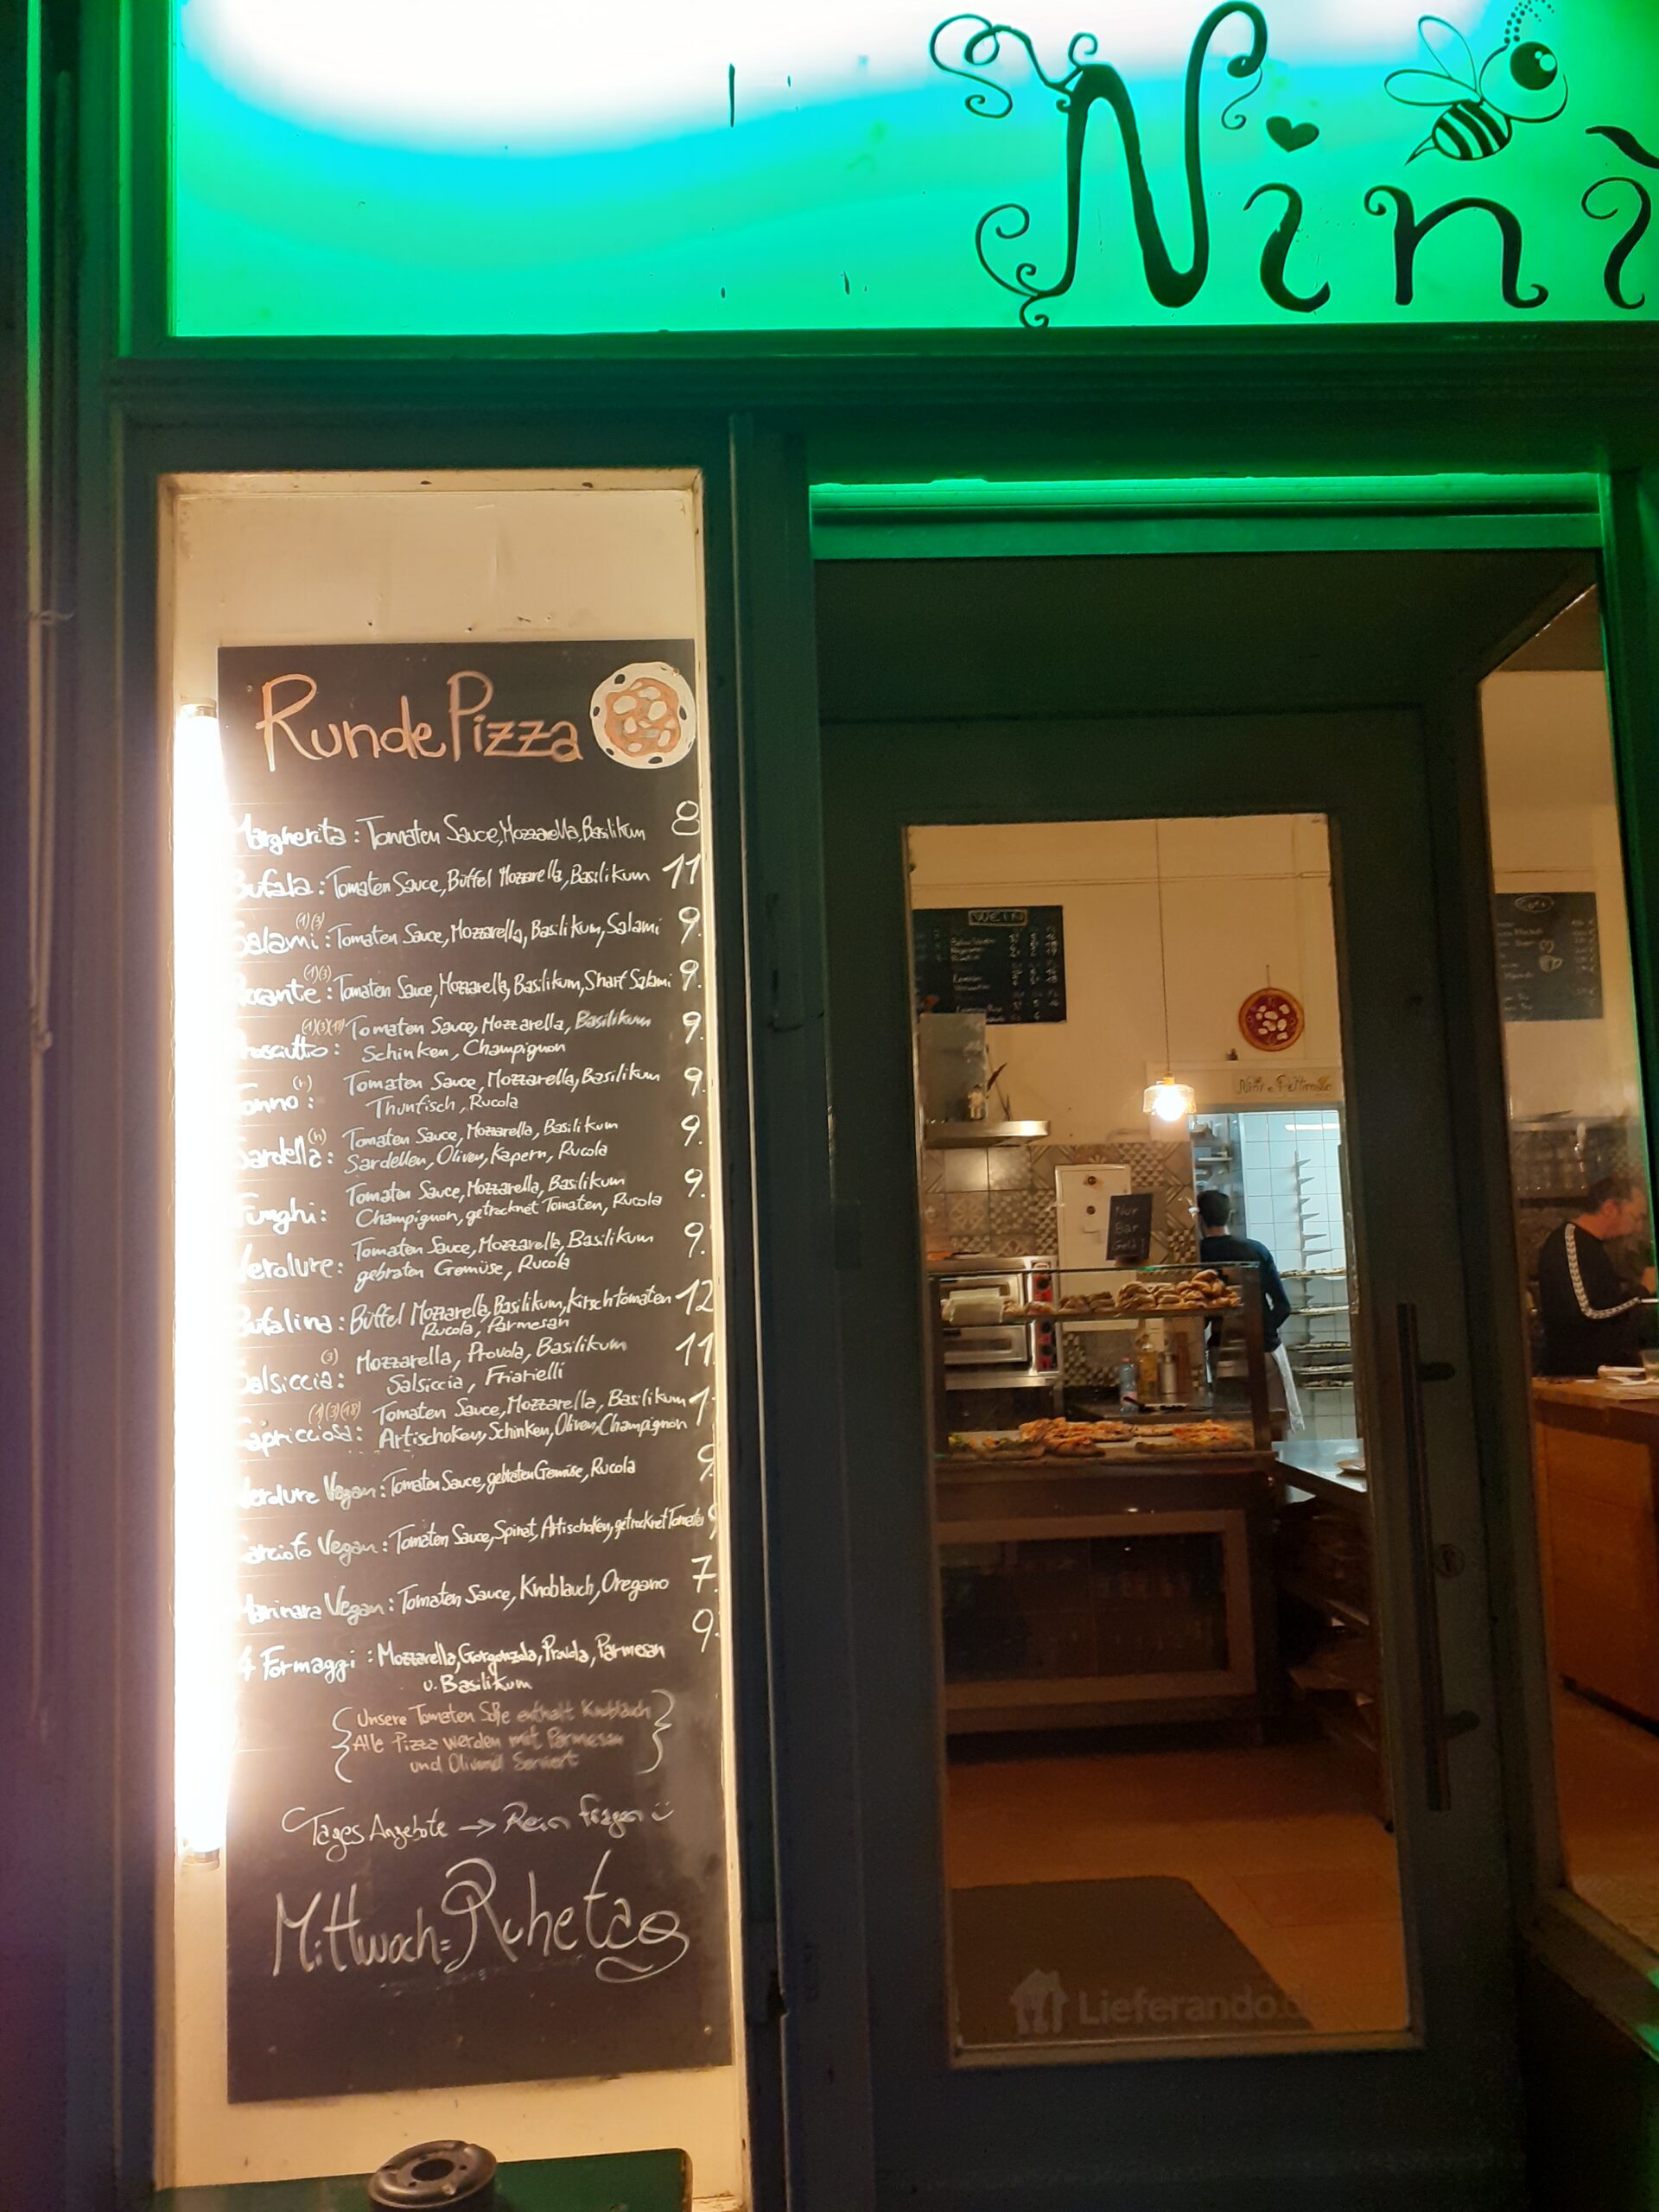 Nini
Runde Pizza
Margherita : Tomaten Sauce, Mozzarella, Basilikum 8
Bufala : Tomaten Sauce, Büffel Mozzarella, Basilikum 11
(1)(3)
Salami : Tomaten Sauce, Mozzarella, Basilikum, Salami 9.
(1)(3)
Piccante : Tomaten Sauce, Mozzarella, Basilikum, Sharf Salami 9.
Tomaten Sauce, Mozzarella, Basilikum 9.
Prosciutto : Schinken, Champignon
Tomaten Sauce, Mozzarella, Basilikum 9.
Tonno : Thunfisch, Rucola
(h)
Tomaten Sauce, Mozzarella, Basilikum 9.
Sardella : Sardellen, Oliven, Kapern, Rucola
Tomaten Sauce, Mozzarella, Basilikum 9.
Funghi : Champignon, getrocknet Tomaten, Rucola
Tomaten Sauce, Mozzarella, Basilikum 9.
Verdure : gebraten Gemüse, Rucola
Bufalina : Büffel Mozzarella, Basilikum, Kirschtomaten 12
Rucola, Parmesan
(3)
Mozzarella, Provola, Basilikum 11
Salsiccia : Salsiccia, Friarielli
(1)(3)(18)
Tomaten Sauce, Mozzarella, Basilikum
Capricciosa : Artischoken, Schinken, Oliven, Champignon
Verdure Vegan : Tomaten Sauce, gebraten Gemüse, Rucola 9.
Carciofo Vegan : Tomaten Sauce, Spinat, Artischoken, getrocknet Tomaten
Marinara Vegan : Tomaten Sauce, Knoblauch, Oregano 7.
4 Formaggi : Mozzarella, Gorgonzola, Provola, Parmesan 9.
u. Basilikum
{ Unsere Tomaten Soße enthalt Knoblauch
Alle Pizza werden mit Parmesan
und Olivenöl Serviert }
Tages Angebote → Rein fragen :)
Mittwoch = Ruhetag
WEIN
Nur
Bar
Geld!
Lieferando.de